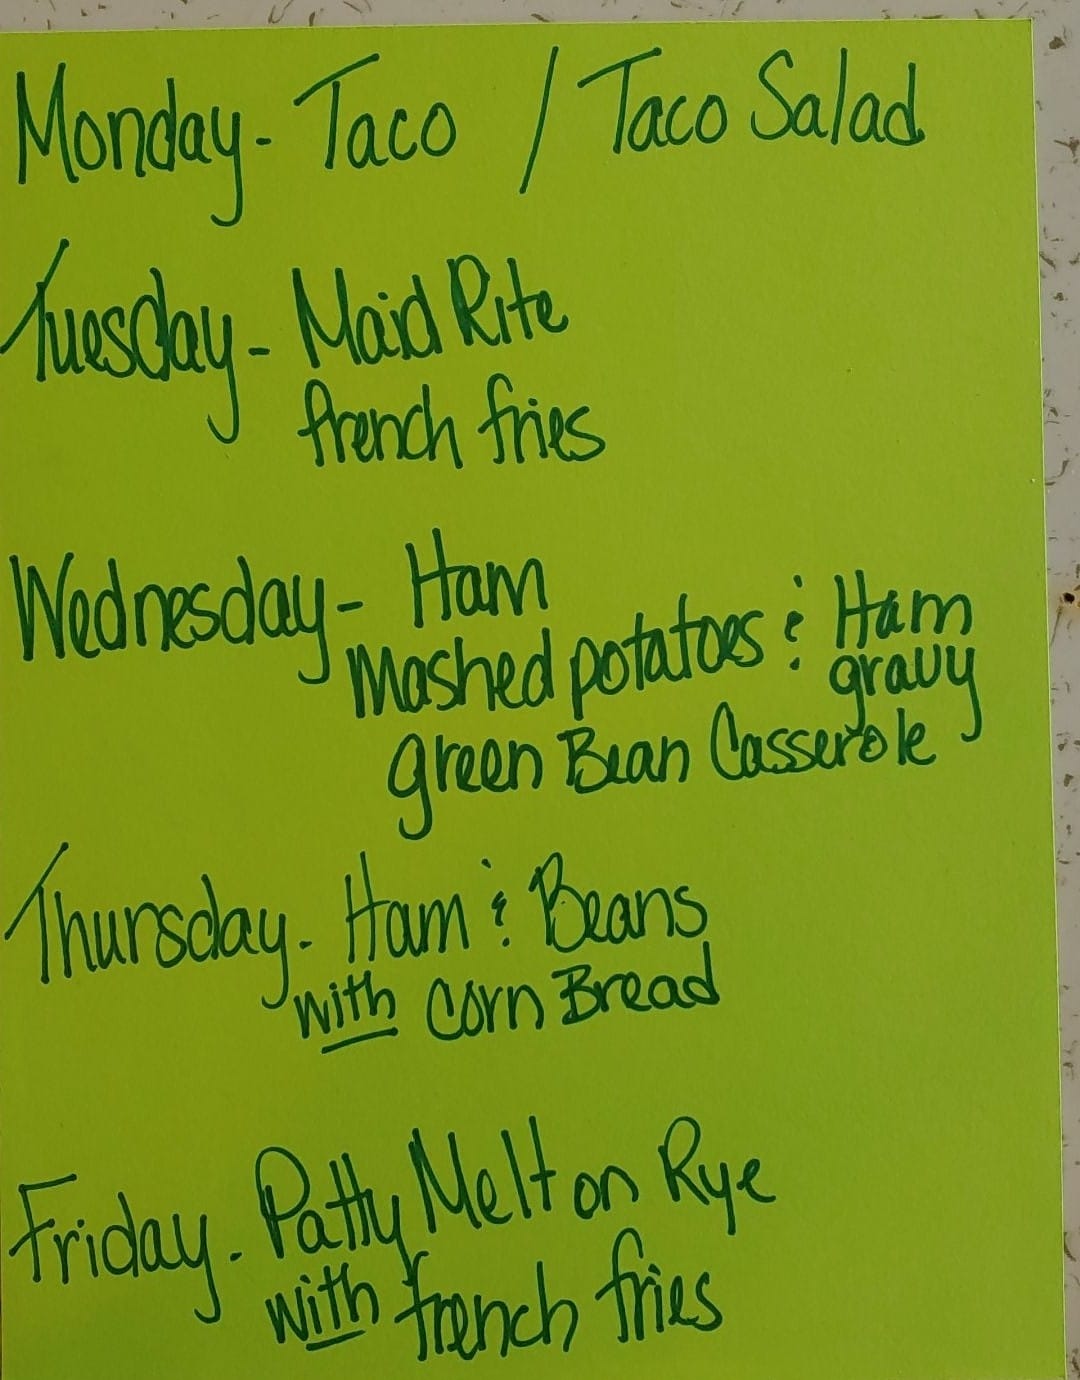 Monday- Taco / Taco Salad
Tuesday- Maid Rite
french fries
Wednesday- Ham
mashed potatoes & Ham
gravy
green Bean Casserole
Thursday- Ham & Beans
with Corn Bread
Friday- Patty Melt on Rye
with french fries